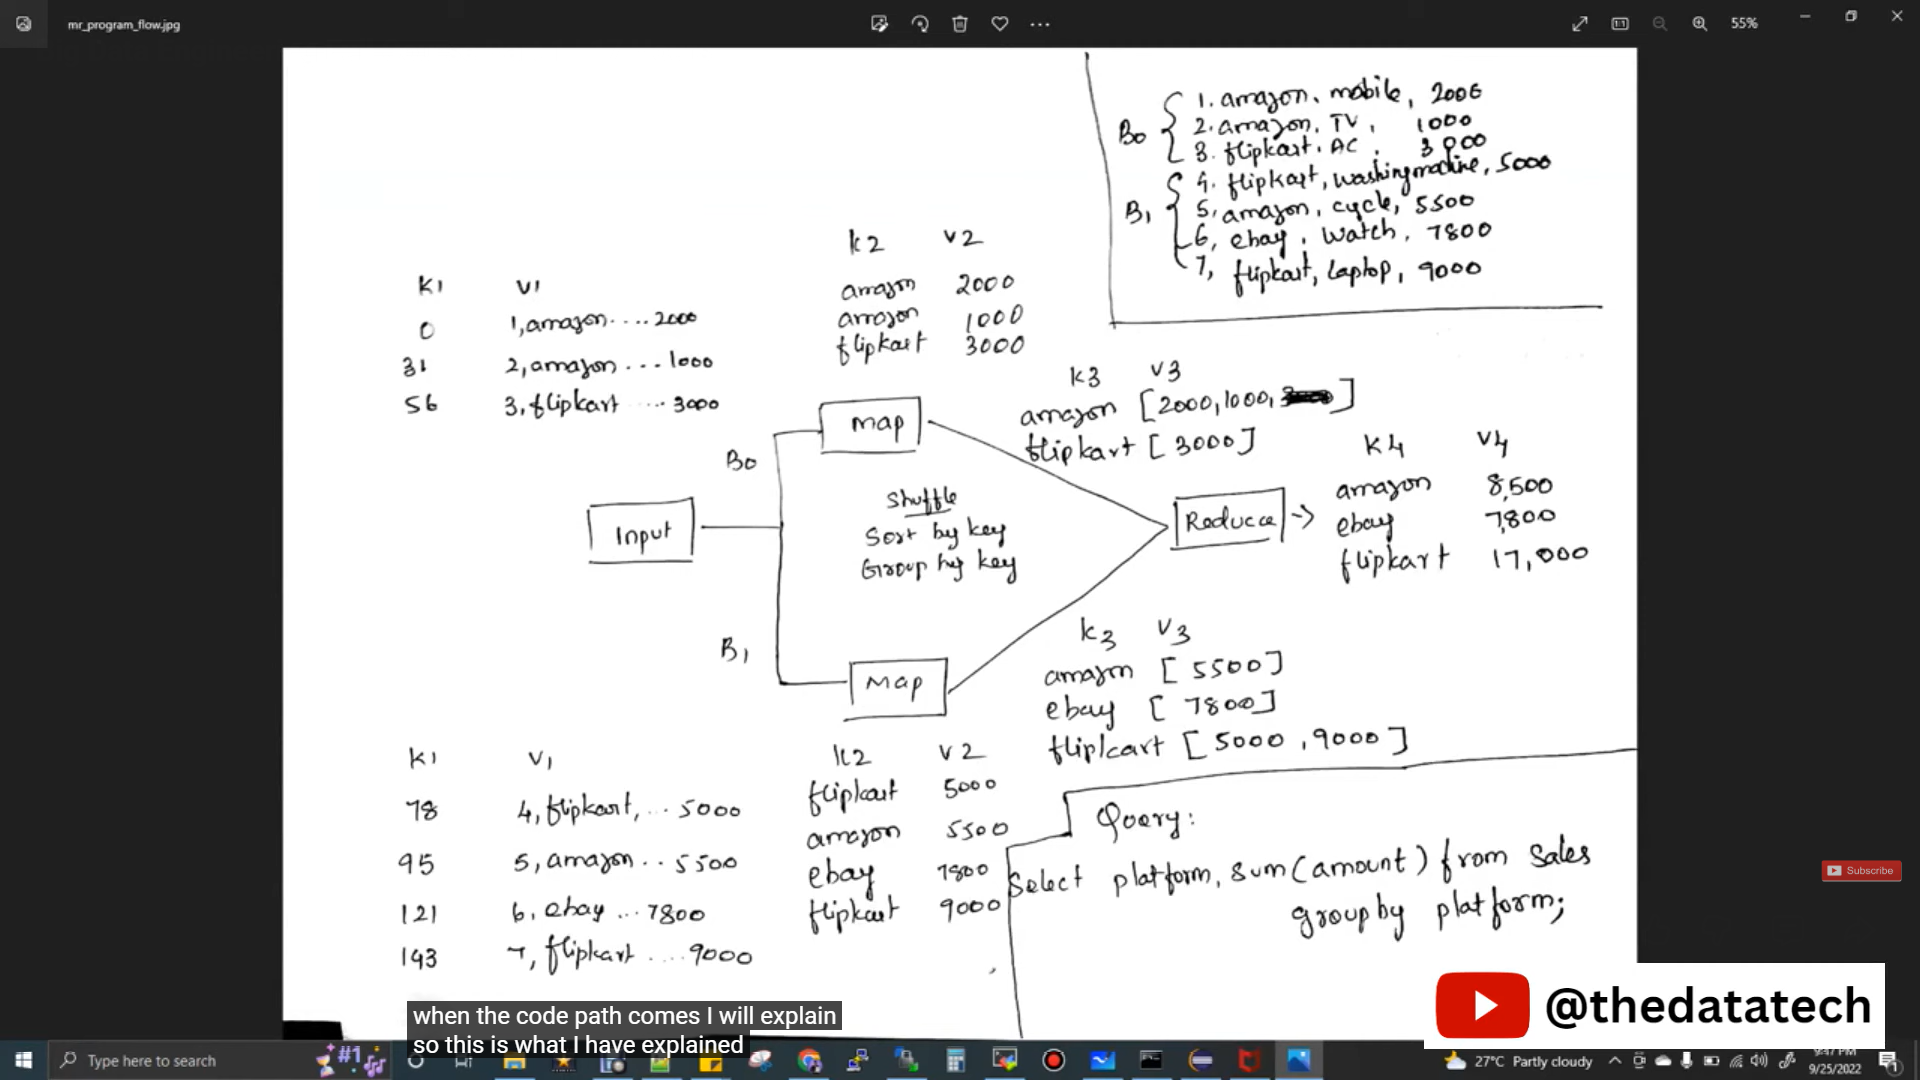 mr_program_flow.jpg
55%
B0
1. amazon, mobile, 2000
2. amazon, TV, 1000
3. flipkart, AC, 3000
B1
4. flipkart, washing machine, 5000
5, amazon, cycle, 5500
6, ebay, watch, 7800
7, flipkart, laptop, 9000
K1 V1
0 1, amazon .... 2000
31 2, amazon ... 1000
56 3, flipkart .... 3000
K2 V2
amazon 2000
amazon 1000
flipkart 3000
K3 V3
amazon [2000, 1000, ]
flipkart [3000]
Map
B0
Input
Shuffle
Sort by key
Group by key
Reduce ->
K4 V4
amazon 8,500
ebay 7,800
flipkart 17,000
B1
Map
K3 V3
amazon [5500]
ebay [7800]
flipkart [5000, 9000]
K1 V1
78 4, flipkart, ... 5000
95 5, amazon .. 5500
121 6, ebay ... 7800
143 7, flipkart .... 9000
K2 V2
flipkart 5000
amazon 5500
ebay 7800
flipkart 9000
Query:
Select platform, sum(amount) from Sales
group by platform;
Subscribe
@thedatatech
when the code path comes I will explain
so this is what I have explained
Type here to search
#1
27°C Partly cloudy
9:47 PM
9/25/2022